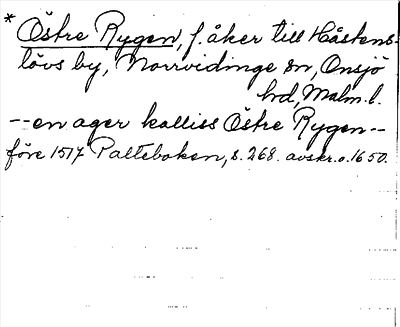 * Östre Rygen, f. åker till Håstens-
lövs by, Norrvidinge sn, Onsjö
hd, Malm. l.
-- en ager kalliss Östre Rygen --
före 1517 Palteboken, s. 268. avskr. o. 1650.